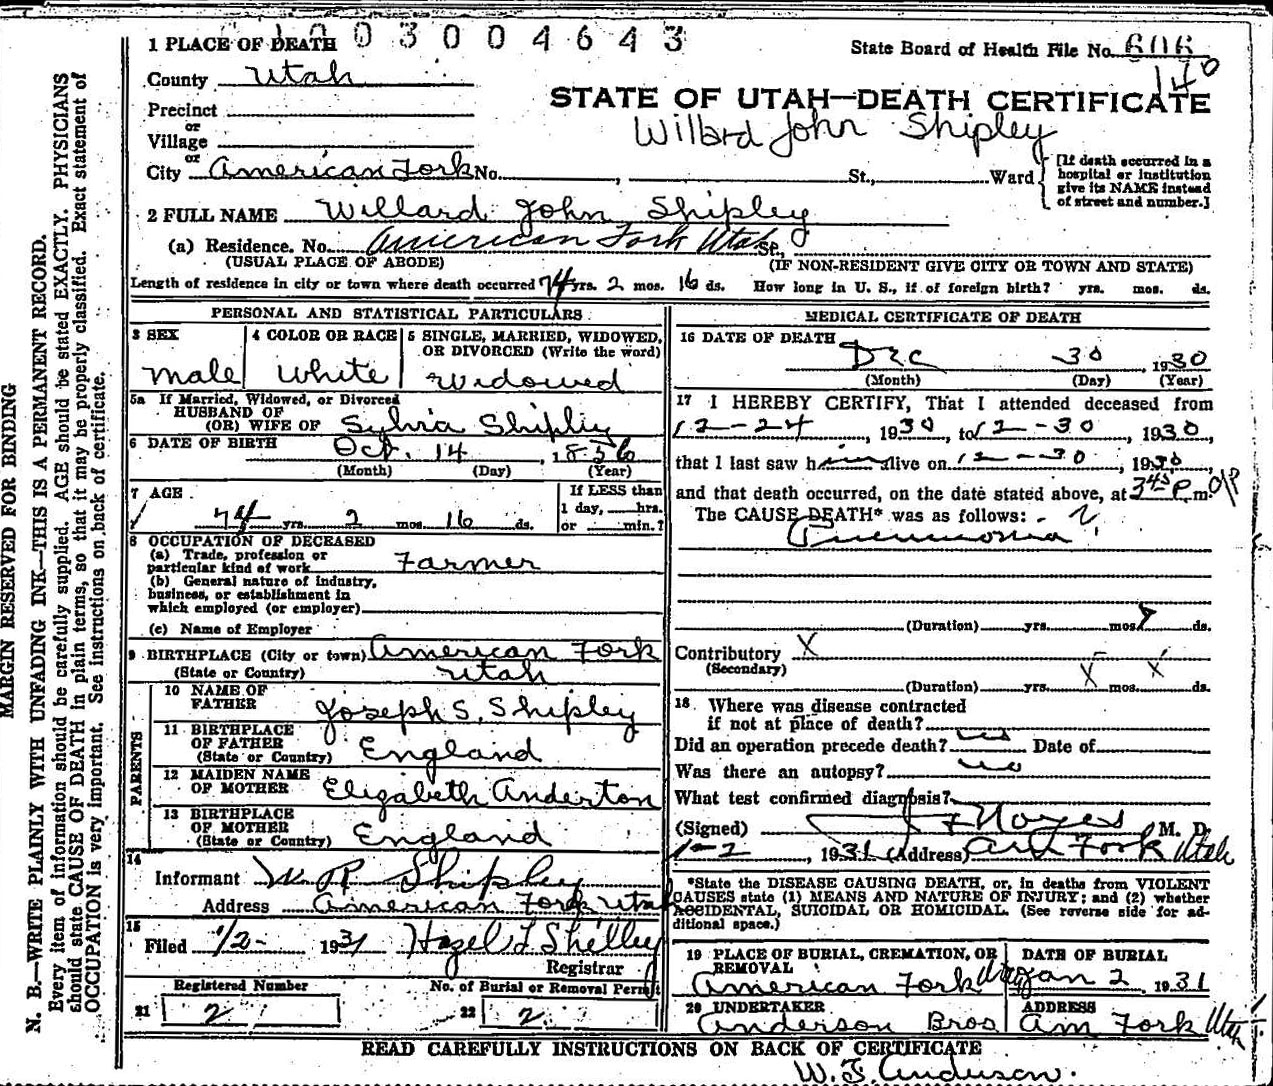 1003004643
1 PLACE OF DEATH
State Board of Health File No. 606
140
County Utah
STATE OF UTAH—DEATH CERTIFICATE
Precinct
Willard John Shipley
or
Village
or
City American Fork No. , St., Ward
[If death occurred in a
hospital or institution
give its NAME instead
of street and number.]
2 FULL NAME Willard John Shipley
(a) Residence. No. American Fork Utah St.,
(USUAL PLACE OF ABODE) (IF NON-RESIDENT GIVE CITY OR TOWN AND STATE)
Length of residence in city or town where death occurred 74 yrs. 2 mos. 16 ds. How long in U. S., if of foreign birth? yrs. mos. ds.
PERSONAL AND STATISTICAL PARTICULARS
3 SEX
Male
4 COLOR OR RACE
White
5 SINGLE, MARRIED, WIDOWED,
OR DIVORCED (Write the word)
Widowed
5a If Married, Widowed, or Divorced
HUSBAND OF
(OR) WIFE OF Sylvia Shipley
6 DATE OF BIRTH Oct. 14, 1856
(Month) (Day) (Year)
7 AGE
74 yrs. 2 mos. 16 ds.
If LESS than
1 day, hrs.
or min.?
8 OCCUPATION OF DECEASED
(a) Trade, profession or
particular kind of work Farmer
(b) General nature of industry,
business, or establishment in
which employed (or employer)
(c) Name of Employer
9 BIRTHPLACE (City or town) American Fork
(State or Country) Utah
PARENTS
10 NAME OF
FATHER Joseph S. Shipley
11 BIRTHPLACE
OF FATHER
(State or Country) England
12 MAIDEN NAME
OF MOTHER Elizabeth Anderton
13 BIRTHPLACE
OF MOTHER
(State or Country) England
14
Informant W R Shipley
Address American Fork Utah
15
Filed 1/2- 1931 Hazel L Shelley
Registrar
Registered Number
21 2
No. of Burial or Removal Permit
22 2
MEDICAL CERTIFICATE OF DEATH
16 DATE OF DEATH
Dec 30 1930
(Month) (Day) (Year)
17 I HEREBY CERTIFY, That I attended deceased from
12-24, 1930, to 12-30, 1930,
that I last saw him alive on 12-30, 1930,
and that death occurred, on the date stated above, at 3 45 P.m.
The CAUSE DEATH* was as follows:
Pneumonia
(Duration) yrs. mos. ds.
Contributory X
(Secondary)
X X
(Duration) yrs. mos. ds.
18 Where was disease contracted
if not at place of death?
Did an operation precede death? no Date of
Was there an autopsy? no
What test confirmed diagnosis?
(Signed) J F Noyes M. D.
1-2, 1931 (Address) Am Fork Utah
*State the DISEASE CAUSING DEATH, or, in deaths from VIOLENT
CAUSES state (1) MEANS AND NATURE OF INJURY; and (2) whether
ACCIDENTAL, SUICIDAL OR HOMICIDAL. (See reverse side for ad-
ditional space.)
19 PLACE OF BURIAL, CREMATION, OR
REMOVAL
American Fork Utah
DATE OF BURIAL
Jan 2 1931
20 UNDERTAKER
Anderson Bros
ADDRESS
Am Fork Utah
READ CAREFULLY INSTRUCTIONS ON BACK OF CERTIFICATE
W. J. Anderson.
MARGIN RESERVED FOR BINDING
N. B.—WRITE PLAINLY WITH UNFADING INK—THIS IS A PERMANENT RECORD.
Every item of information should be carefully supplied. AGE should be stated EXACTLY. PHYSICIANS
should state CAUSE OF DEATH in plain terms, so that it may be properly classified. Exact statement of
OCCUPATION is very important. See instructions on back of certificate.